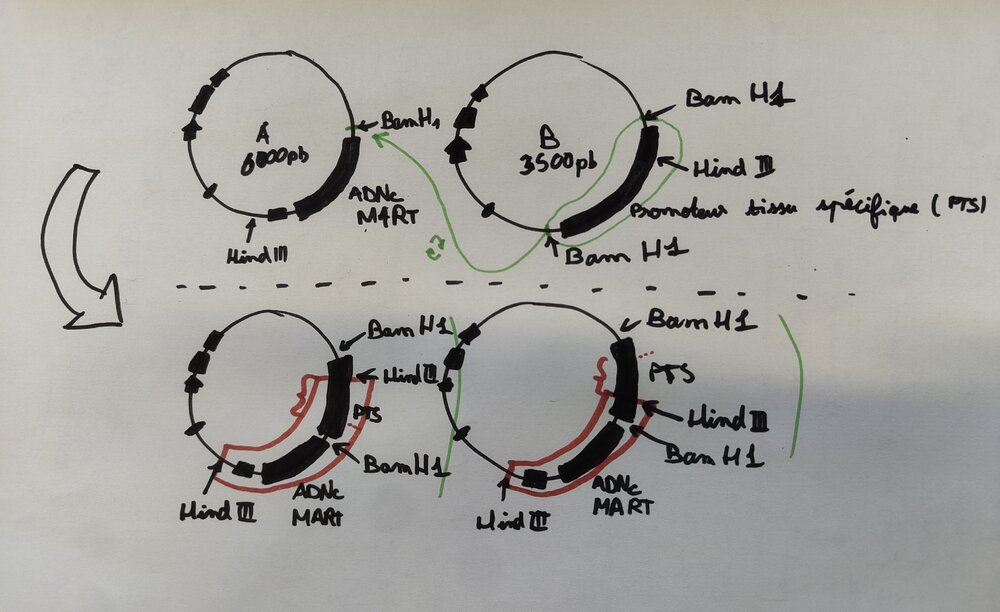 A
6000pb
BamH1
ADNc
MART
Hind III
B
3500pb
Bam H1
Hind III
Promoteur tissu spécifique (PTS)
Bam H1
Bam H1
Hind III
PTS
BamH1
ADNc
MART
Hind III
Bam H1
PTS
Hind III
Bam H1
ADNc
MART
Hind III